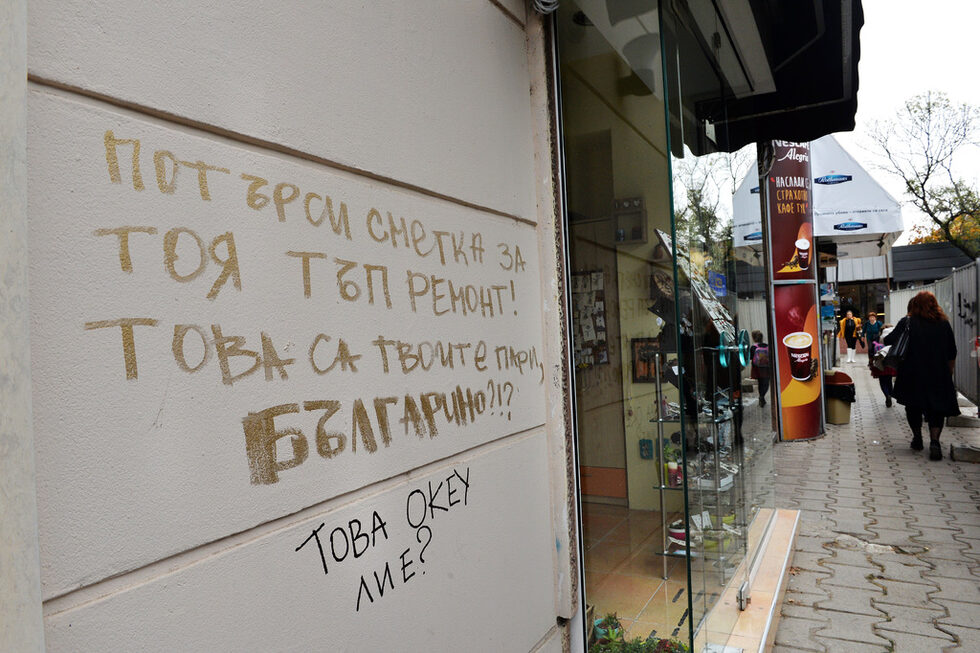 ПОТЪРСИ СМЕТКА ЗА
ТОЯ ТЪП РЕМОНТ!
ТОВА СА ТВОИТЕ ПАРИ,
БЪЛГАРИНО?!?
ТОВА OKEY
ЛИ Е?
NESCAFÉ
Alegria
НАСЛАДИ СЕ
СТРАХОТНО
КАФЕ ТУК
Rothmans
Rothmans